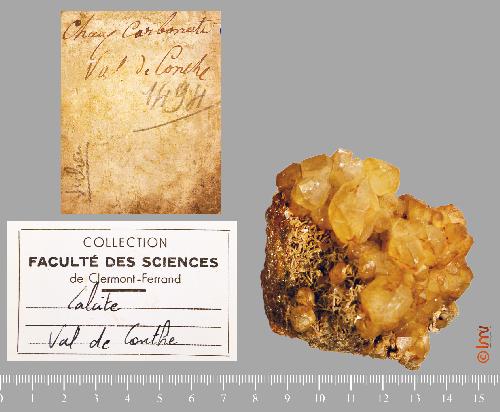 Chaux Carbonatée
Val de Conthe
1494
Julien
COLLECTION
FACULTÉ DES SCIENCES
de Clermont-Ferrand
Calcite
Val de Conthe
© lmv
0 1 2 3 4 5 6 7 8 9 10 11 12 13 14 15